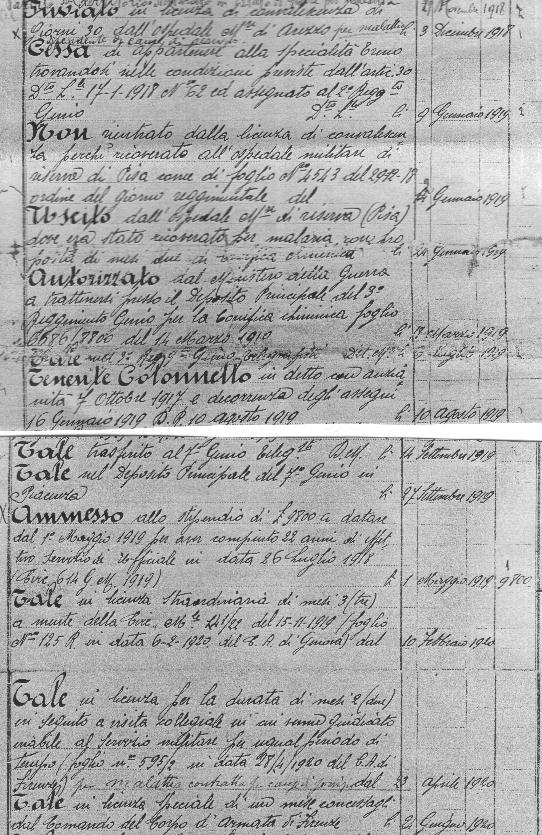 Inviato in licenza di convalescenza di
Giorni 30 dall'ospedale M.re d'Arezzo per malattia li 3 Dicembre 1918
Cessa di appartenere alla specialità Treno
trovandosi nelle condizioni previste dall'artic. 30
D.to L.t. 17-1-1918 N° 62 ed assegnato al 2° Regg.to
Genio D.to L.t. li 9 Gennaio 1919
Non rientrato dalla licenza di convalescen
za perchè ricoverato all'ospedale militare di
riserva di Pisa come di foglio N° 4543 del 29-12-18
ordine del giorno reggimentale del Gennaio 1919
Uscito dall'ospedale M.re di riserva (Pisa)
dove era stato ricoverato per malaria con pro
posta di mesi due di li 24 Gennaio 1919
Autorizzato dal Ministero della Guerra
a trattenersi presso il Deposito Principale del 3°
Reggimento Genio per la foglio
6686/7800 del 14 Marzo 1919 li Marzo 1919
Tale nel 2° Regg.to Genio Telegrafisti Det. M.le li Luglio 1919
Tenente Colonnello in detto con anzia
nità 7 Ottobre 1917 e decorrenza degli assegni
16 Gennaio 1919 D.P. 10 agosto 1919 li 10 Agosto 1919
Tale trasferito al 7° Genio Teleg.sti li 14 Settembre 1919
Tale nel Deposito Principale del 7° Genio in
Piacenza li 27 Settembre 1919
Ammesso allo stipendio di £ 9800 a datare
dal 1° Maggio 1919 per aver compiuto 22 anni di effet
tivo servizio di Ufficiale in data 26 Luglio 1918
(Circ. 614 G.M. 1919) li 1 Maggio 1919 9800
Tale in licenza straordinaria di mesi 3 (tre)
a mente della Circ. del 15-11-1919 (foglio
N° 125 R. in data 6-2-1920 del C.A. di Genova) dal 10 Febbraio 1920
Tale in licenza per la durata di mesi 2 (due)
in seguito a visita collegiale in cui venne giudicato
inabile al servizio militare per ugual periodo di
tempo (foglio n° 595/2 in data 28/4/1920 del C.A. di
Firenze) per malattia contratta dal 23 Aprile 1920
Tale in licenza speciale di un mese concessagli
dal Comando del Corpo d'Armata di Firenze li 2 Giugno 1920